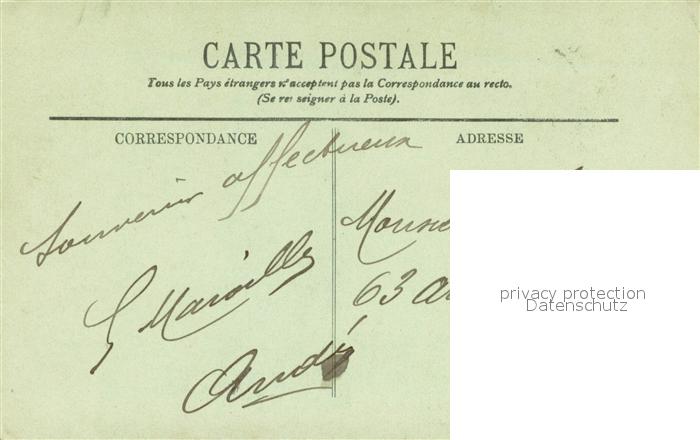 CARTE POSTALE
Tous les Pays étrangers n'acceptent pas la Correspondance au recto.
(Se renseigner à la Poste).
CORRESPONDANCE
ADRESSE
Souvenir affectueux
63
privacy protection
Datenschutz